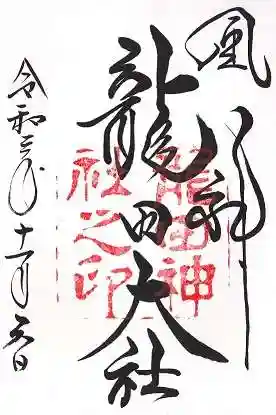 風神
龍田大社
龍田神
社之印
令和三年十一月日